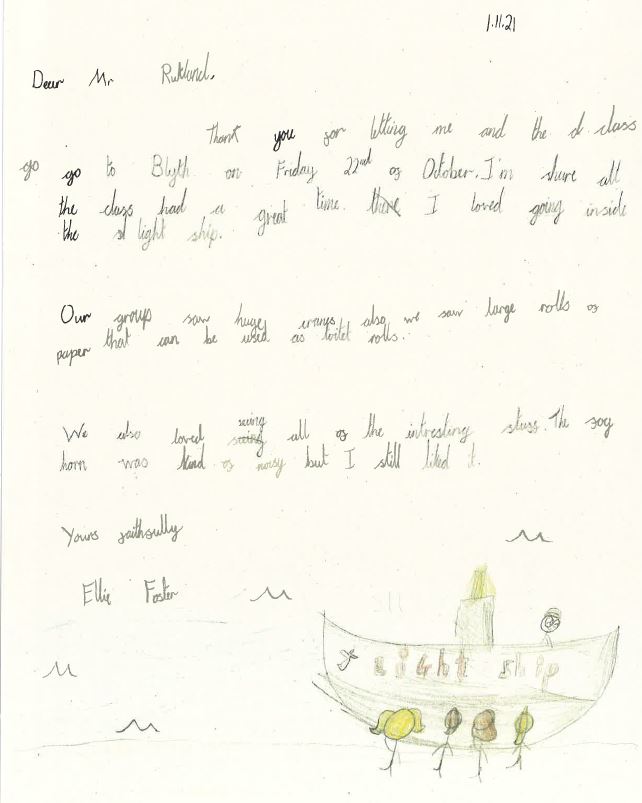 1.11.21
Dear Mr Rutland,
Thank you for letting me and the class
go go to Blyth on Friday 22nd of October. I'm share all
the class had a great time. there I loved going inside
the light ship.
Our groups saw huge crangs also we saw large rolls of
paper that can be used as toilet rolls.
seeing
We also loved seeing all of the intresting stuff. The fog
horn was kind of noisy but I still liked it.
Yours faithfully
Ellie Foster
Light ship